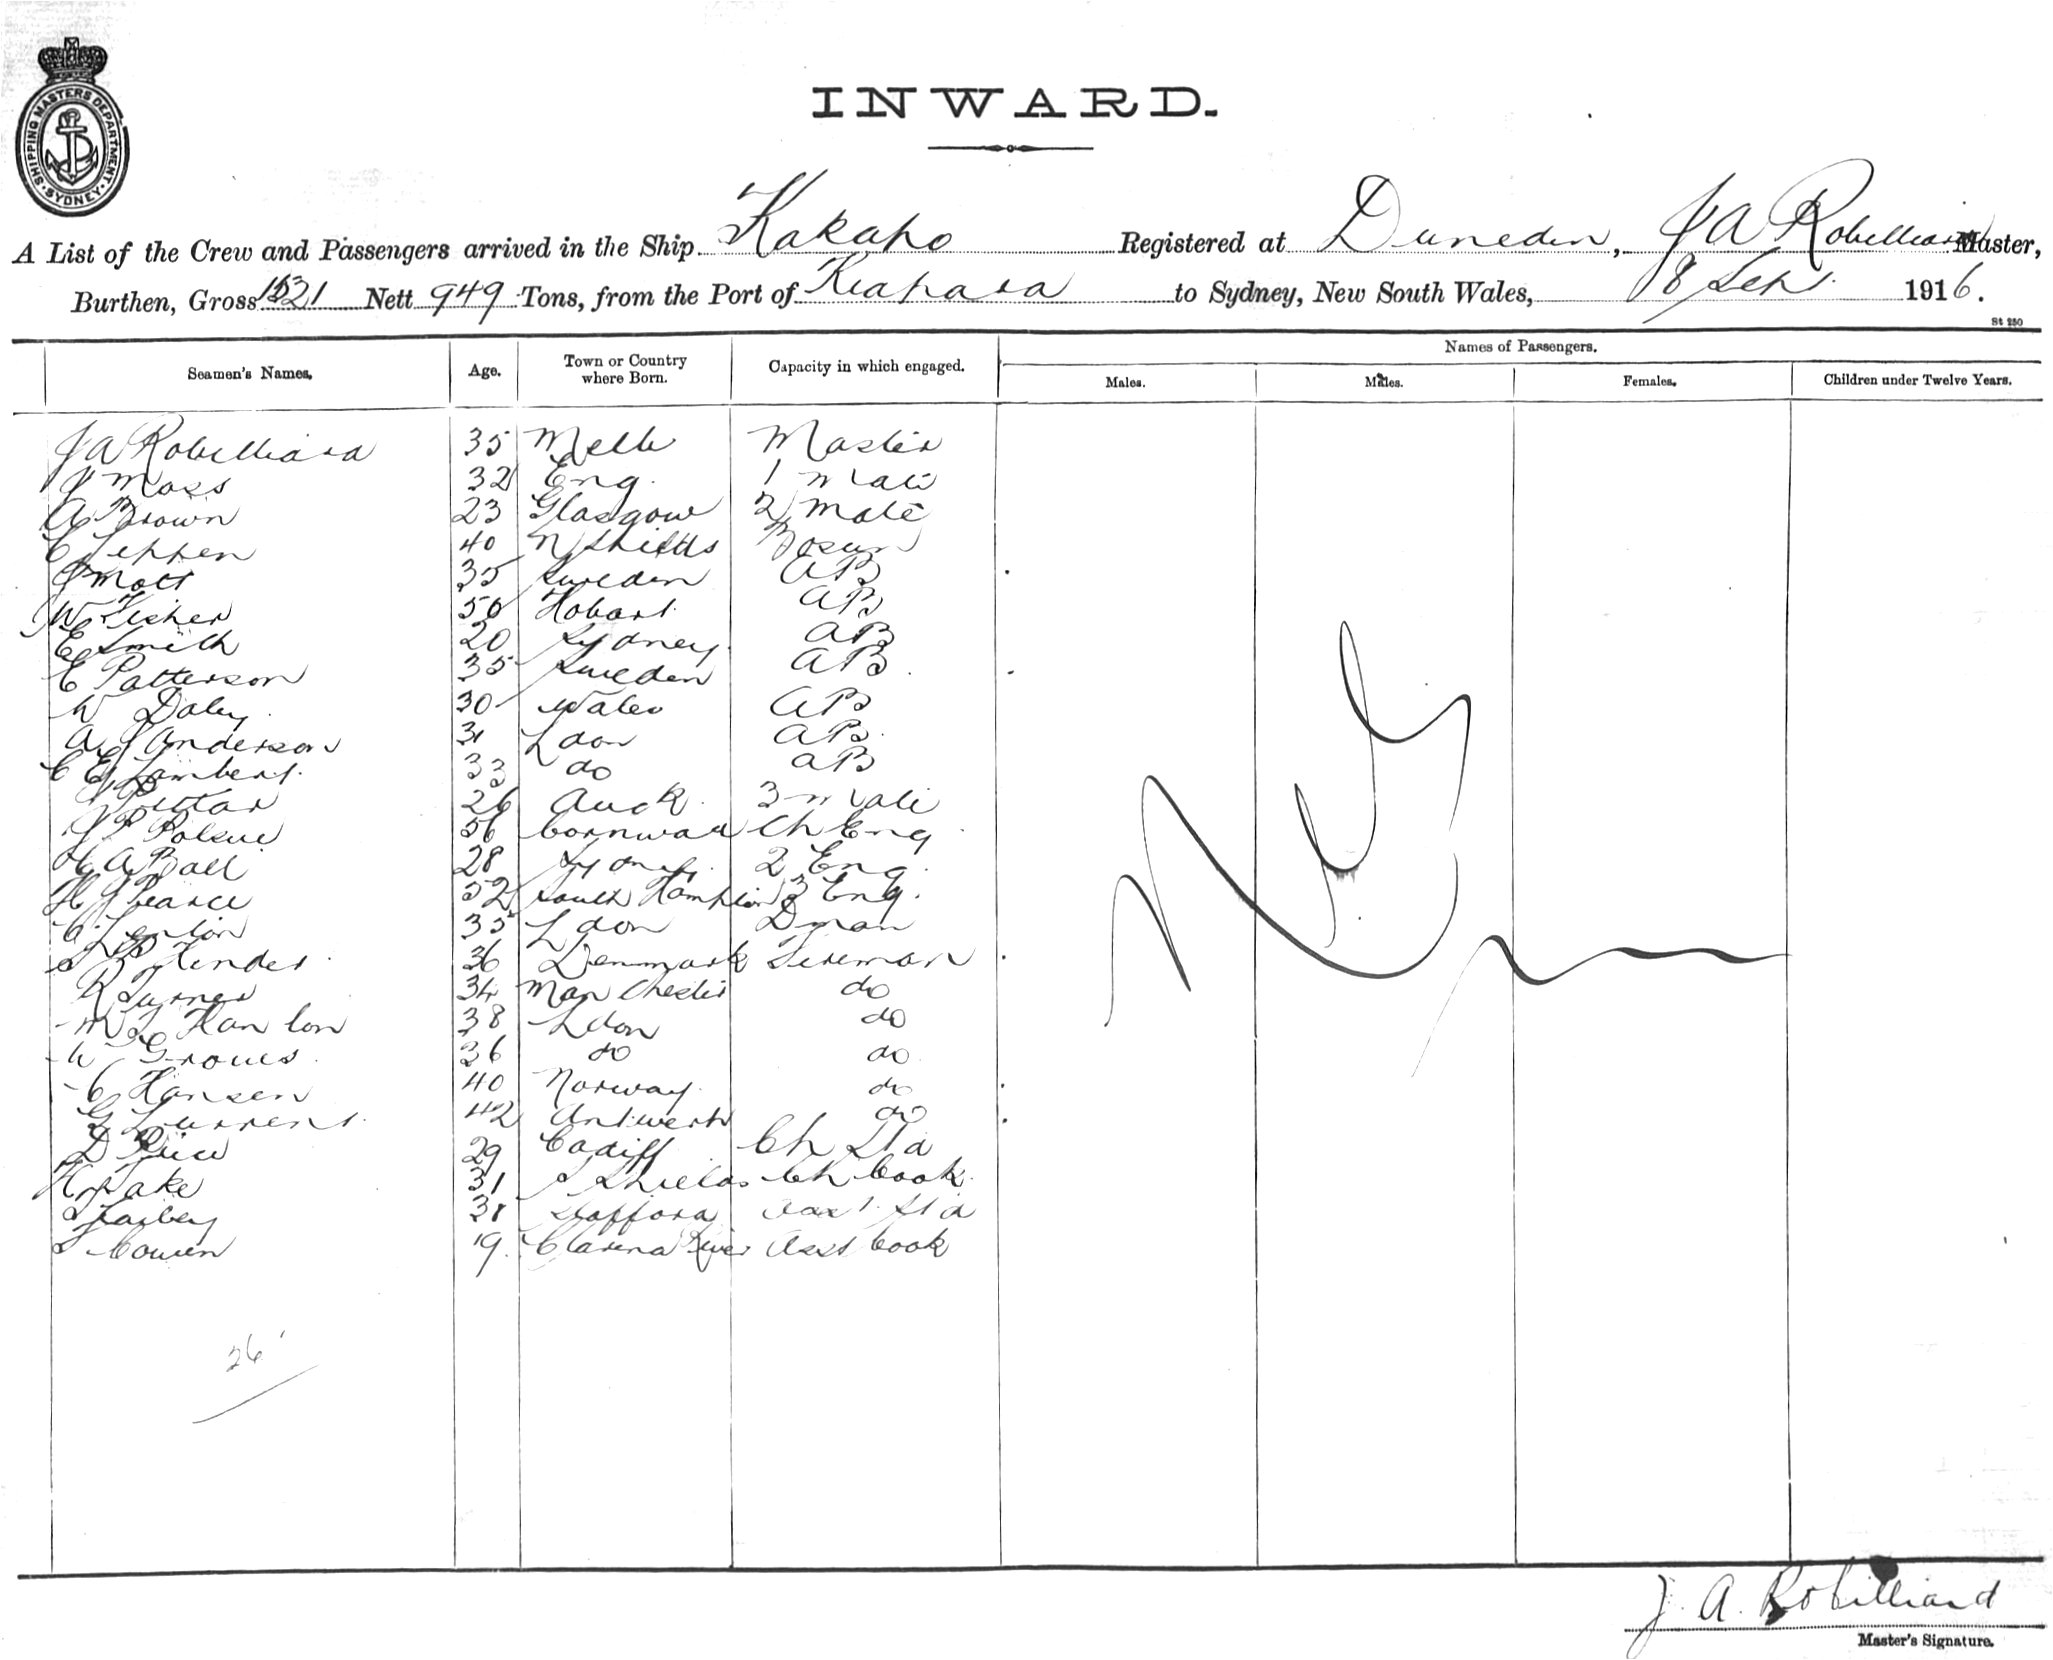 SHIPPING MASTERS DEPARTMENT. SYDNEY
INWARD.
A List of the Crew and Passengers arrived in the Ship Kakapo Registered at Dunedin, J A Robilliard Master,
Burthen, Gross 1521 Nett 949 Tons, from the Port of to Sydney, New South Wales, 8 Sep. 1916.
St 250
Seamen's Names. Age. Town or Country where Born. Capacity in which engaged. Names of Passengers.
Males. Males. Females. Children under Twelve Years.
J A Robilliard 35 Melb Master
J Moss 32 Eng. 1 Mate
A Brown 23 Glasgow 2 Mate
C Jeppen 40 N Shields Bosun
J Mott 35 Sweden AB
W Fisher 50 Hobart AB
E Smith 20 Sydney AB
E Patterson 35 Sweden AB
W Daley 30 Wales AB
A J Anderson 31 Ldon AB
C E Lambert 33 do AB
26 Auck. 3 Mate
J P Polsue 56 Cornwall Ch Eng
H A Ball 28 Sydney 2 Eng.
H J Pearce 52 South Hampton 3 Eng.
C Lenton 35 Ldon Dman
Kinder 36 Denmark Fireman
R Turner 34 Manchester do
M Hanlon 38 Ldon do
W Groves 36 do do
C Hansen 40 Norway do
G Laurent 42 Antwerp do
D Price 29 Cardiff Ch Std
H Jake 31 S Shields Ch Cook
38 Stafford Asst. Std
S Cowen 19. Clarence River Asst Cook
26
J. A. Robilliard
Master's Signature.